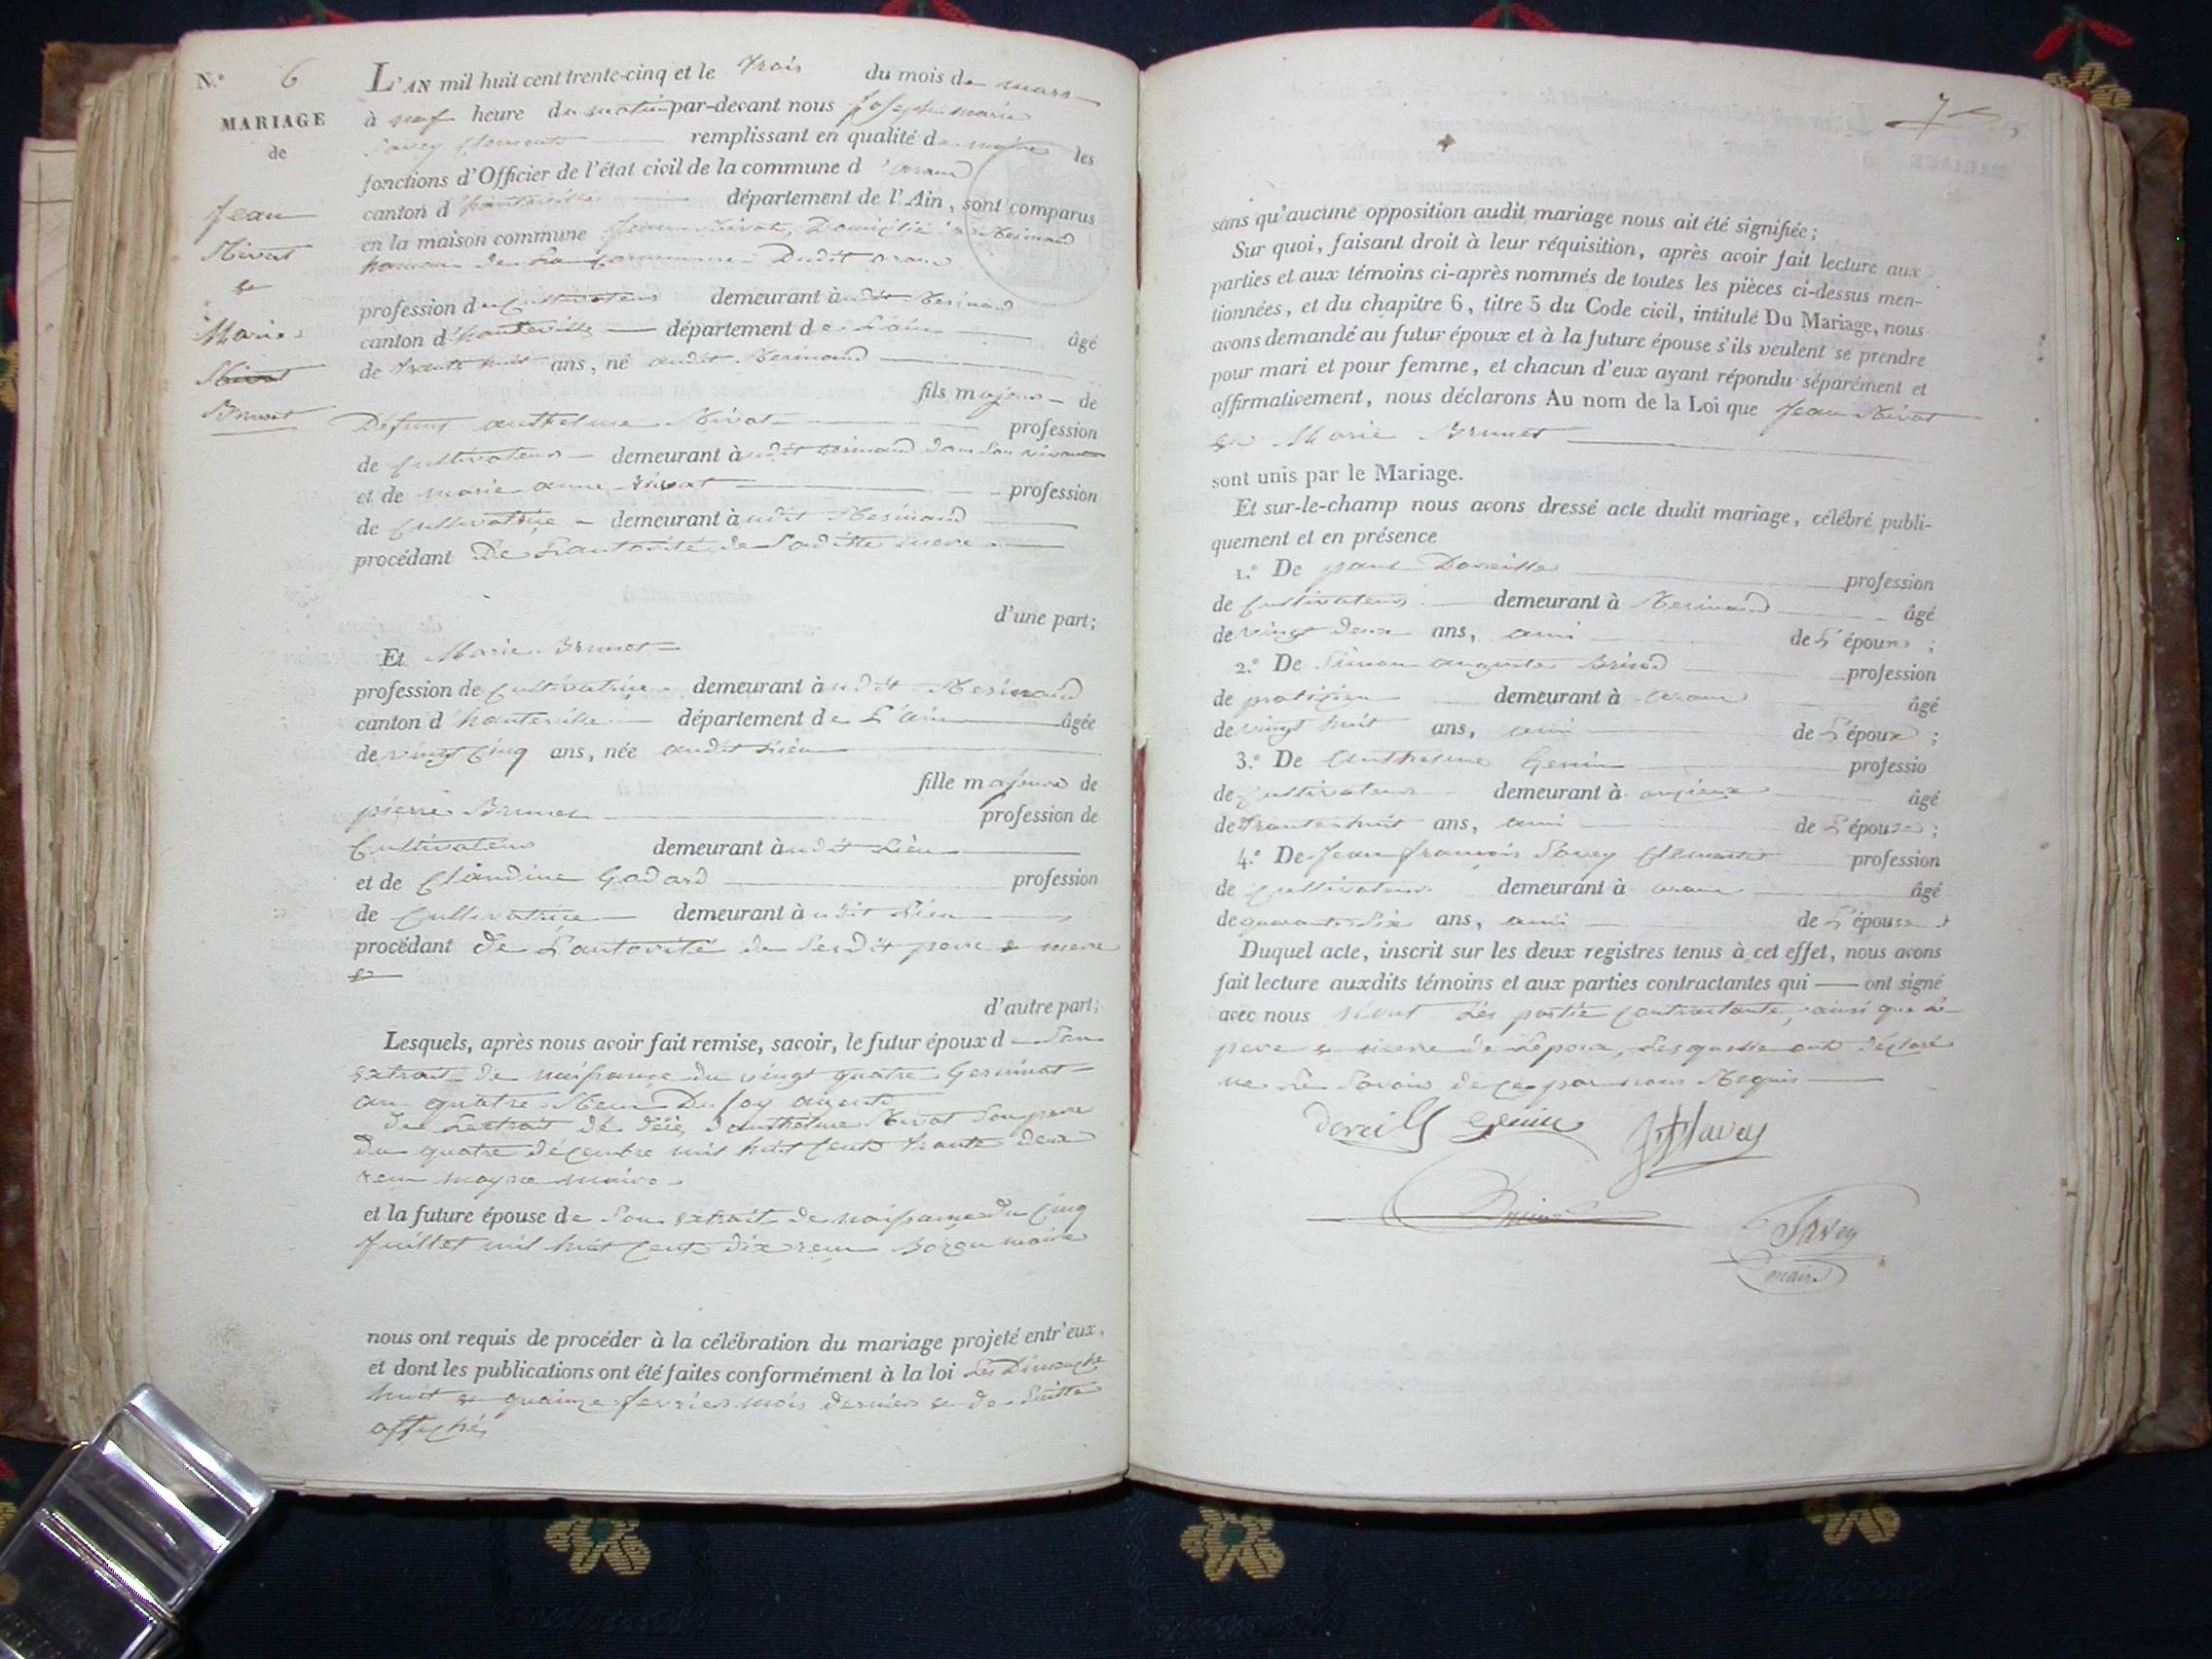 N.° 6
MARIAGE
de
Jean
Nivat
&
Marie
Nivat
Brunet
L'AN mil huit cent trente-cinq et le trois du mois de mars
à neuf heure du matin par-devant nous Joseph marie
Savey Clement remplissant en qualité de maire les
fonctions d'Officier de l'état civil de la commune d'aranc
canton d'hauteville département de l'Ain, sont comparus
en la maison commune Jean Nivat, Domicilié à Resinand
hameau de la Commune Dudit aranc
profession de Cultivateur demeurant àudit Resinand
canton d'hauteville département de L'ain âgé
de trante huit ans, né audit Resinand
fils majeur de
Defunt anthelme Nivat profession
de Cultivateur demeurant àudit Resinand dans Son vivant
et de marie anne profession
de Cultivatrice demeurant àudit Resinand
procédant De L'autorité de Saditte mere
d'une part;
Et Marie Brunet
profession de Cultivatrice demeurant àudit Resinand
canton d'hauteville département de L'ain âgée
de vingt Cinq ans, née audit Lieu
fille majeure de
pierre Brunet profession de
Cultivateur demeurant àudit Lieu
et de Claudine Godard profession
de Cultivatrice demeurant àudit Lieu
procédant de L'autorité de Sesdit pere & mere
&
d'autre part;
Lesquels, après nous avoir fait remise, savoir, le futur époux de Son
extrait de naissance du vingt quatre Germinal
an quatre
De Lextrait de décè d'anthelme Nivat Son pere
Du quatre décembre mil huit Cent trante deux
reçu maire
et la future épouse de Son extrait de naissance du Cinq
Juillet mil huit Cent dix reçu maire
nous ont requis de procéder à la célébration du mariage projeté entr'eux,
et dont les publications ont été faites conformément à la loi Les Dimanche
huit & quainze fevrier mois dernier & de Suitte
affiché
7
sans qu'aucune opposition audit mariage nous ait été signifiée;
Sur quoi, faisant droit à leur réquisition, après avoir fait lecture aux
parties et aux témoins ci-après nommés de toutes les pièces ci-dessus men-
tionnées, et du chapitre 6, titre 5 du Code civil, intitulé Du Mariage, nous
avons demandé au futur époux et à la future épouse s'ils veulent se prendre
pour mari et pour femme, et chacun d'eux ayant répondu séparément et
affirmativement, nous déclarons Au nom de la Loi que Jean Nivat
& Marie Brunet
sont unis par le Mariage.
Et sur-le-champ nous avons dressé acte dudit mariage, célébré publi-
quement et en présence
1.° De paul Dareille profession
de Cultivateur demeurant à Resinand âgé
de vingt deux ans, ami de L'époux ;
2.° De Simon auguste profession
de praticien demeurant à aranc âgé
de vingt huit ans, ami de L'époux ;
3.° De Anthelme Genin professio
de Cultivateur demeurant à âgé
de trante huit ans, ami de L'épouse ;
4.° De Jean françois Savey Clement profession
de Cultivateur demeurant à aranc âgé
de quarante Six ans, ami de L'épouse
Duquel acte, inscrit sur les deux registres tenus à cet effet, nous avons
fait lecture auxdits témoins et aux parties contractantes qui ont signé
avec nous Les partie Contractante, ainsi que Le
pere & mere de Lépoux, Lesquelle ont déclaré
ne Le Savoir de Ce par nous Requis
Genin Savey
Savey
maire